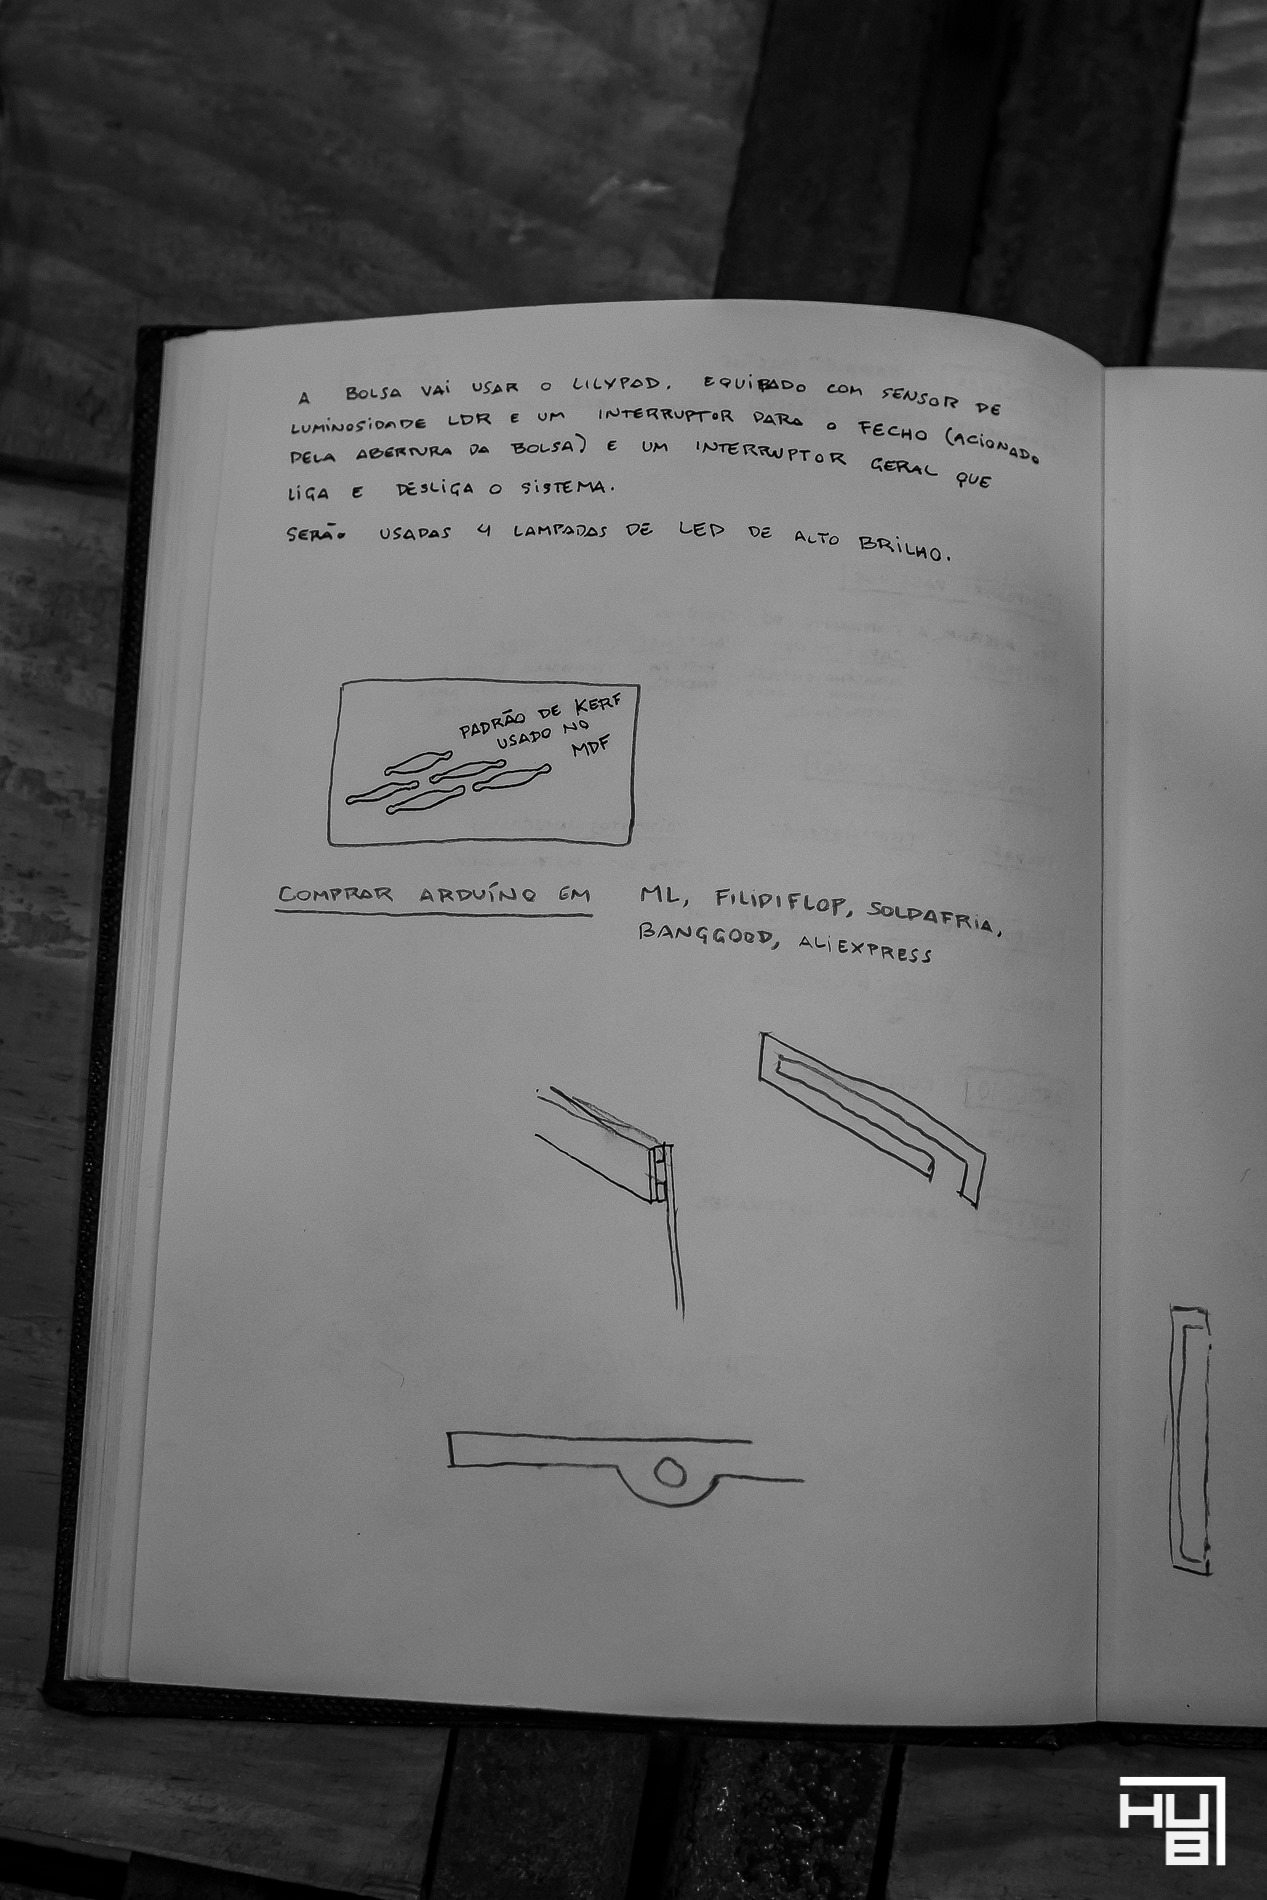 A BOLSA VAI USAR O LILYPAD. EQUIPADO COM SENSOR DE
LUMINOSIDADE LDR E UM INTERRUPTOR PARA O FECHO (ACIONADO
PELA ABERTURA DA BOLSA) E UM INTERRUPTOR GERAL QUE
LIGA E DESLIGA O SISTEMA.
SERÃO USADAS 4 LAMPADAS DE LED DE ALTO BRILHO.
PADRÃO DE KERF
USADO NO
MDF
COMPRAR ARDUÍNO EM ML, FILIPIFLOP, SOLDAFRIA,
BANGGOOD, ALIEXPRESS
HU8